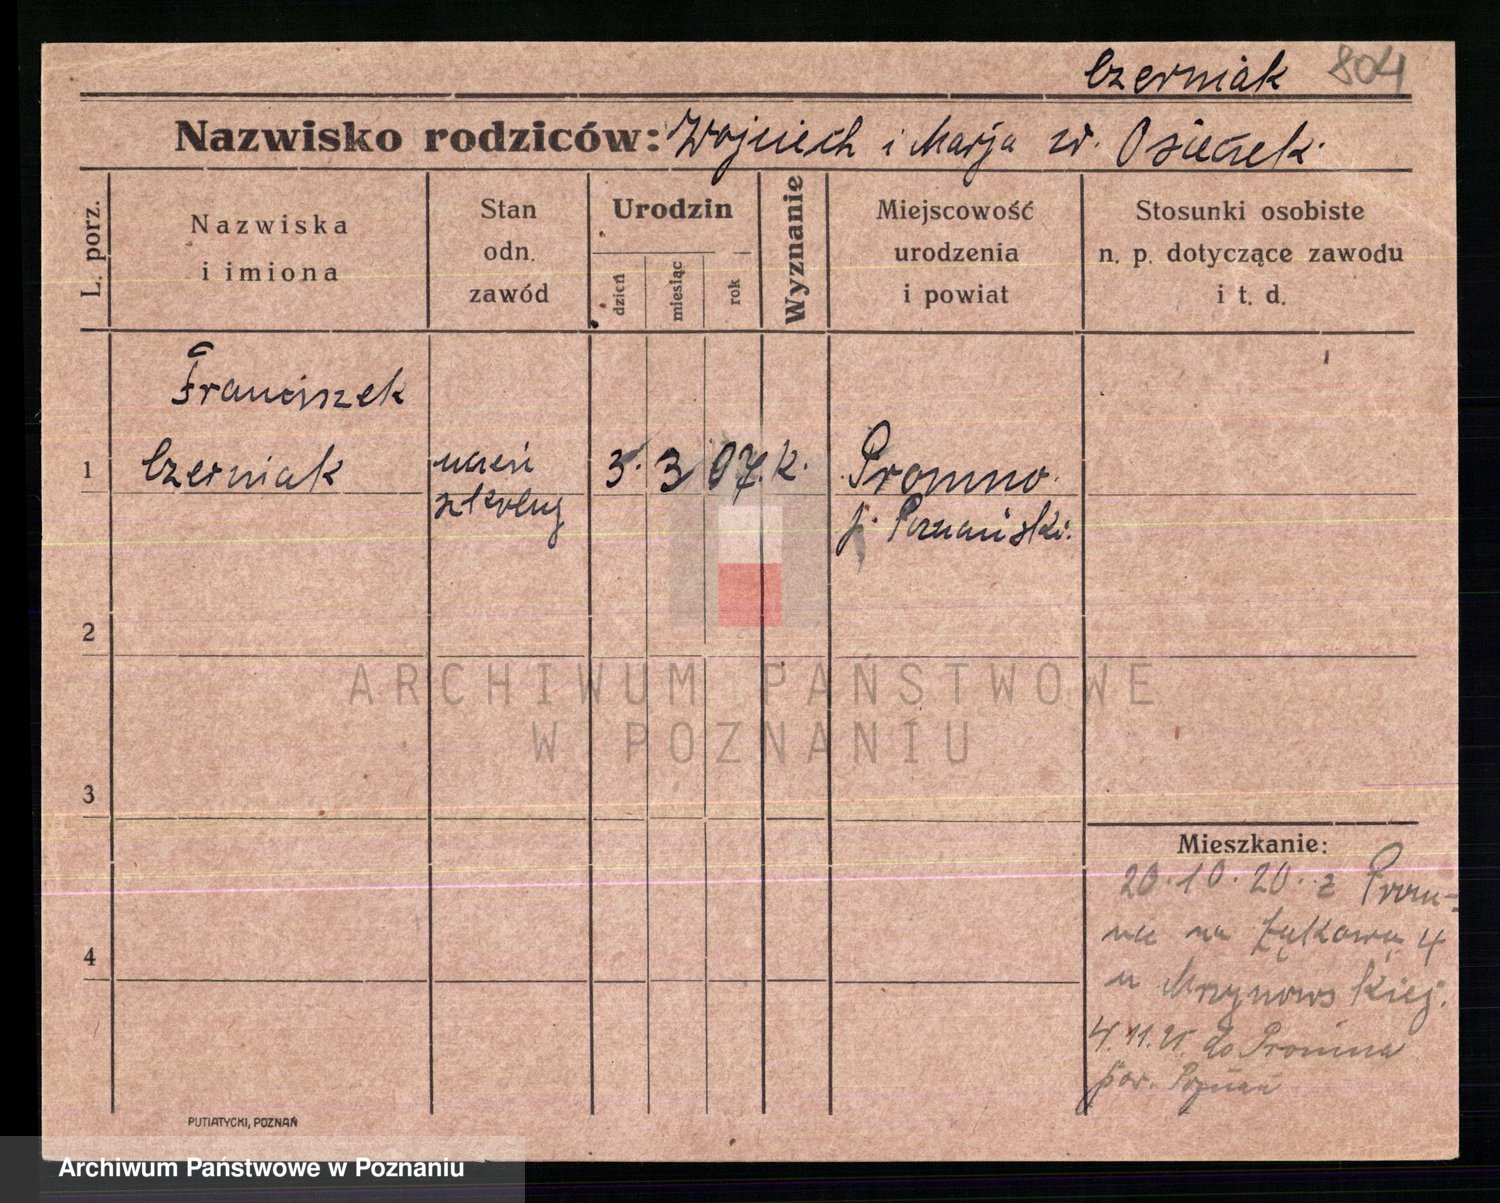 Czerniak 804
Nazwisko rodziców: Wojciech i Marja zd. Osieciek.
L. porz.
Nazwiska
i imiona
Stan
odn.
zawód
Urodzin
dzień
miesiąc
rok
Wyznanie
Miejscowość
urodzenia
i powiat
Stosunki osobiste
n. p. dotyczące zawodu
i t. d.
Franciszek
1 Czerniak uczeń 3. 3 07. k. Promno.
szkolny p. Poznański.
2
ARCHIWUM PAŃSTWOWE
W POZNANIU
3
Mieszkanie:
20.10.20. z Prom=
na na Łąkową 4
u Mrzynowskiej.
4
4.11.21. do Promna
pow. Poznań
PUTIATYCKI, POZNAŃ
Archiwum Państwowe w Poznaniu